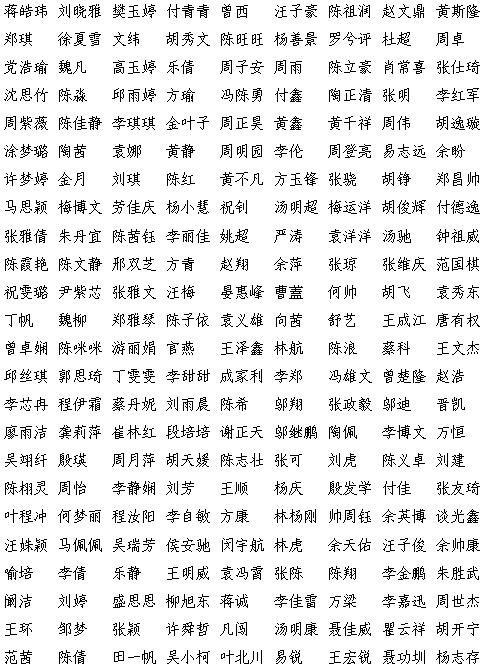 蒋皓玮 刘晓雅 樊玉婷 付青青 曾西 汪子豪 陈祖润 赵文鼎 黄斯隆
郑琪 徐夏雪 文纬 胡秀文 陈旺旺 杨善景 罗兮评 杜超 周卓
党浩瑜 魏凡 高玉婷 乐倩 周子安 周雨 陈立豪 肖常喜 张仕琦
沈思竹 陈淼 邱雨婷 方瑜 冯陈勇 付鑫 陶正清 张明 李红军
周紫薇 陈佳静 李琪琪 金叶子 周正昊 黄鑫 黄千祥 周伟 胡逸璇
涂梦璐 陶茜 袁娜 黄静 周明园 李伦 周登亮 易志远 余盼
许梦婷 金月 刘琪 陈红 黄不凡 方玉锋 张骁 胡铮 郑昌帅
马思颖 梅博文 芳佳庆 杨小慧 祝钊 汤明超 梅运洋 胡俊辉 付德逸
张雅倩 朱丹宜 陈茜钰 李丽佳 姚超 严涛 袁洋洋 汤驰 钟祖威
陈霞艳 陈文静 邢双芝 方青 赵翔 余萍 张琼 张维庆 范国棋
祝雯璐 尹紫芯 张雅文 汪梅 晏惠峰 曹蓋 何帅 胡飞 袁秀东
丁帆 魏柳 郑雅琴 陈子依 袁义雄 向茜 舒艺 王成江 唐有权
曾卓娴 陈咪咪 游丽娟 官燕 王泽鑫 林航 陈浪 蔡科 王文杰
邱丝琪 郭思琦 丁雯雯 李甜甜 成家利 李郑 冯雄文 曾楚隆 赵浩
李芯冉 程伊霜 蔡丹妮 刘雨晨 陈希 邬翔 张政毅 邬迪 晋凯
廖雨洁 龚莉萍 崔林红 段培培 谢正天 邬继鹏 陶佩 李博文 万恒
吴翊纤 殷瑛 周月萍 胡天媛 陈志壮 张可 刘虎 陈义卓 刘建
陈栩灵 周怡 李静娴 刘芳 王顺 杨庆 殷发学 付佳 张友琦
叶程冲 何梦丽 程汝阳 李自敏 方康 林杨刚 帅周钰 余英博 谈光鑫
汪姝颖 马佩佩 吴瑞芳 侯安驰 闵宇航 林虎 余天佑 汪子俊 余帅康
喻培 李倩 乐静 王明威 袁冯霄 张陈 陈翔 李金鹏 朱胜武
阚洁 刘婷 盛思思 柳旭东 蒋诚 李佳雷 万梁 李嘉迅 周世杰
王环 邹梦 张颖 许舜哲 凡闯 汤明康 聂佳威 瞿云祥 胡开宁
范茜 陈倩 田一帆 吴小柯 叶北川 易锐 王宏锐 聂功圳 杨志存